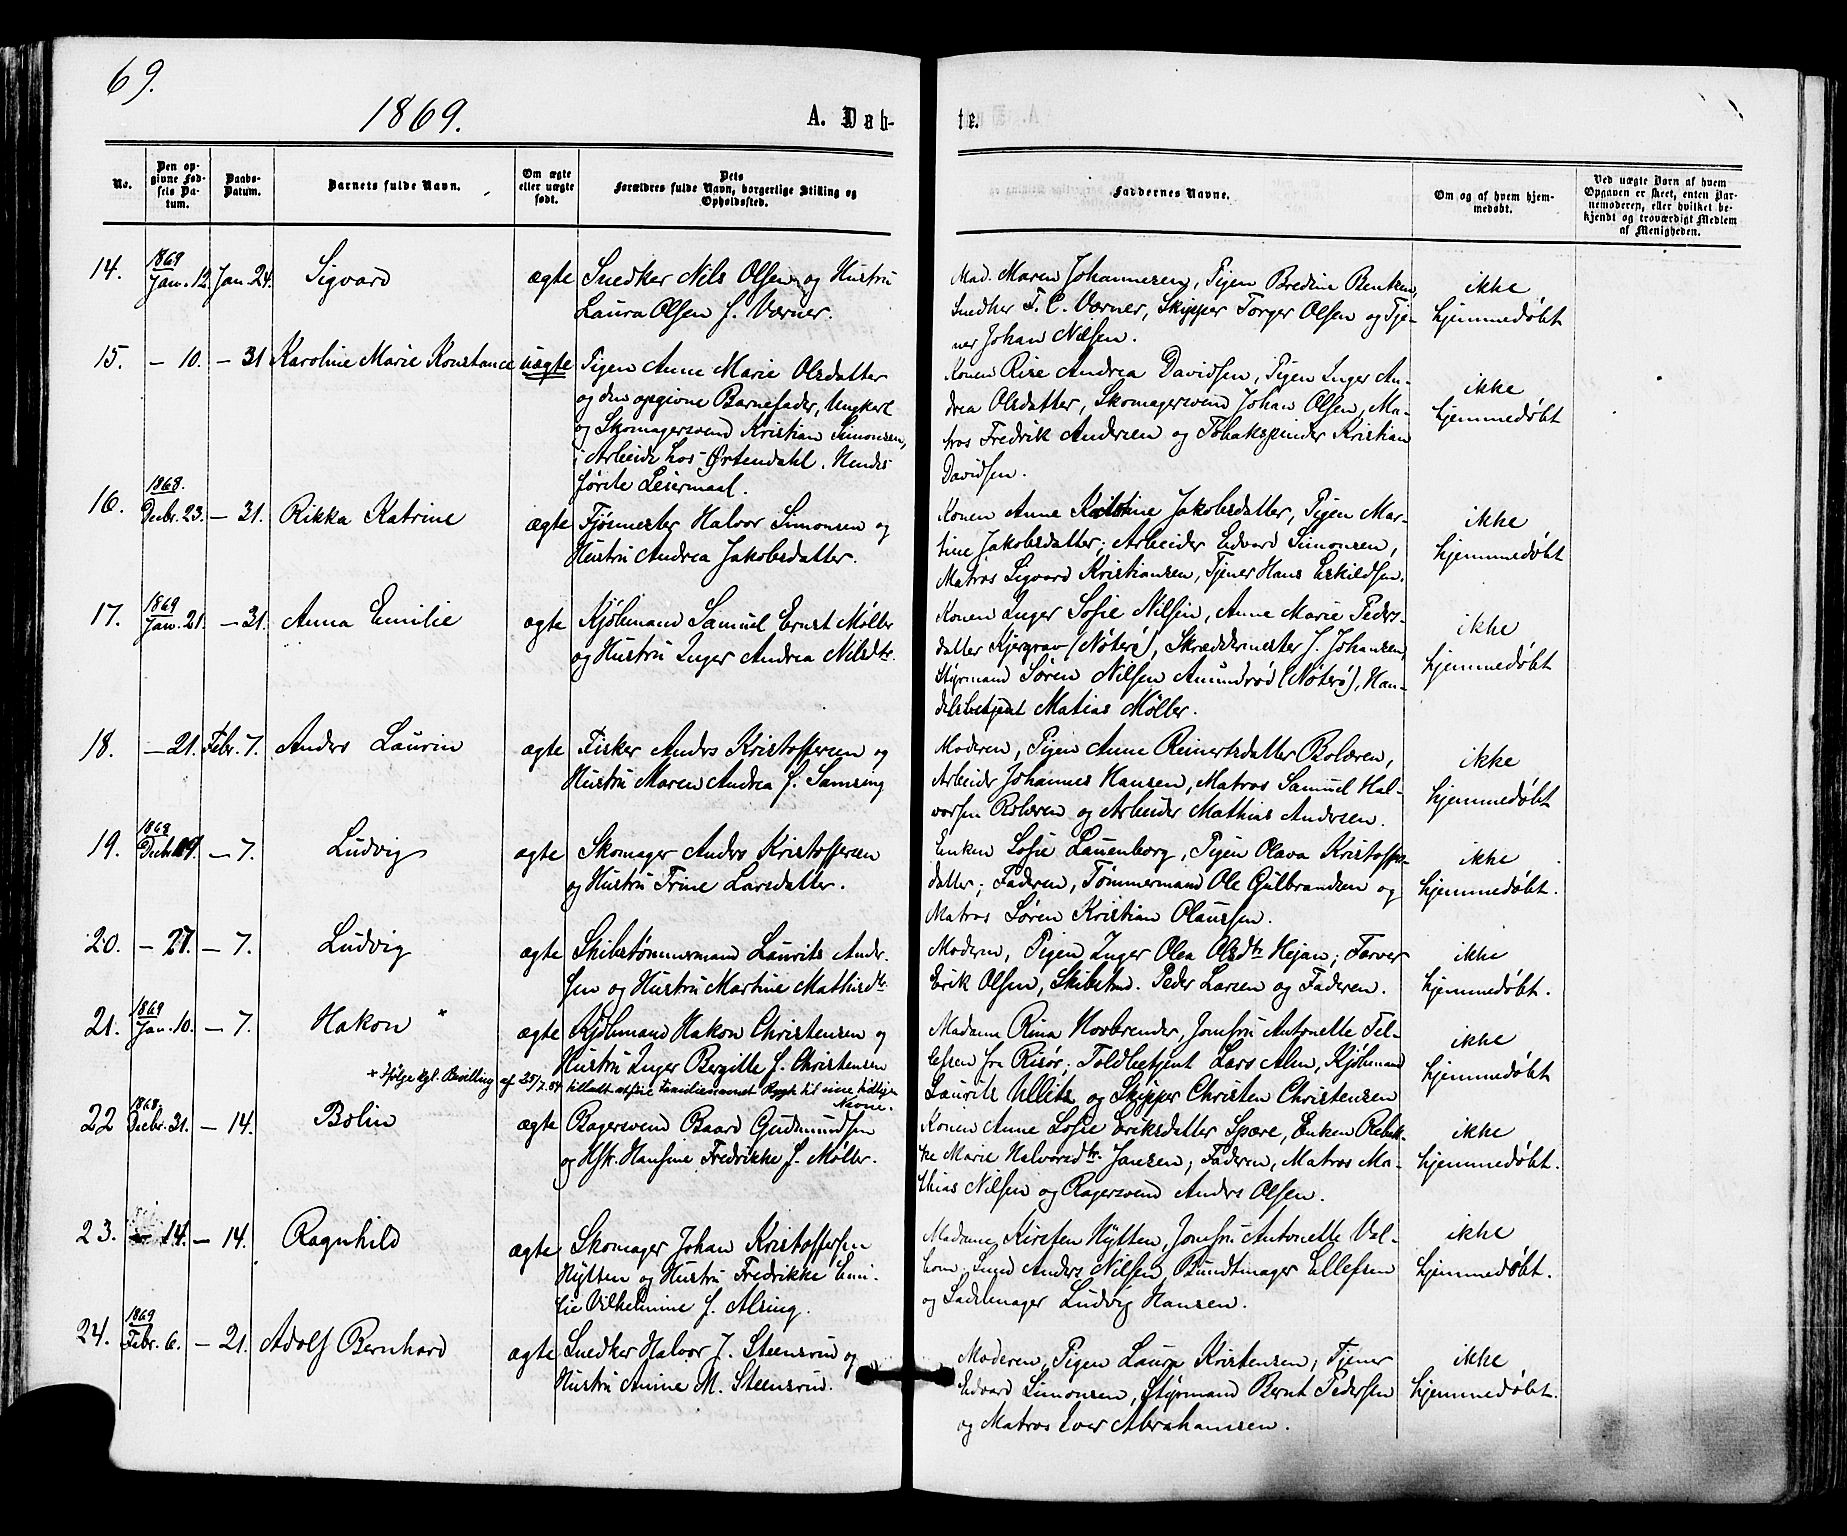 69.
1869.
A. Døb-
te.
No.
Den op-
givne Fød-
sels Da-
tum.
Daabs-
Datum.
Barnets fulde Navn.
Om ægte
eller uægte
født.
Dets
Forældres fulde Navn, borgerlige Stilling og
Opholdssted.
Faddernes Navne.
Om og af hvem hjem-
medøbt.
Ved uægte Børn af hvem
Opgaven er skeet, enten Bar-
nemoderen, eller hvilket be-
kjendt og troværdigt Medlem
af Menigheden.
14. 1869 Jan. 12. Jan. 24. Sigvard ægte
Snedker Nils Olsen og Hustru
Laura Olsen f. Værner.
Mad. Maren Johannesen, Pigen Bredine Bentsen,
Snedker T. C. Værner, Skipper Torger Olsen og Tje-
ner Johan Nilsen.
ikke
hjemmedøbt
15. - 10. - 31 Karoline Marie Konstance uægte
Pigen Anne Marie Olsdatter
og den opgivne Barnefader, Ungkarl
og Skomagersvend Kristian Simonsen,
i Arbeide hos Ørtendahl. Hendes
første Leiermaal.
Konen Rise Andrea Davidsen, Pigen Inger An-
drea Olsdatter, Skomagersvend Johan Olsen, Ma-
tros Fredrik Andersen og Tobakspinder Kristian
Davidsen.
ikke
hjemmedøbt
16. 1868. Decbr. 23. - 31. Rikka Katrine ægte
Fjøsmester Halvor Simonsen og
Hustru Andrea Jakobsdatter.
Konen Anne Jakobsdatter, Pigen Mar-
tine Jakobsdatter; Arbeider Edvard Simonsen,
Matros Sigvard Kristiansen, Tjener Hans Eskildsen.
ikke
hjemmedøbt
17. 1869 Jan. 21. - 31. Anna Emilie ægte
Kjøbmand Samuel Ernst Møller
og Hustru Inger Andrea Nilsdtr.
Konen Inger Sofie Nilsen, Anne Marie Peders-
datter Kjergrav (Nøterø), Skræddermester J. Johansen,
Styrmand Søren Nilsen Amundrød (Nøterø), Han-
delsbetjent Matias Møller.
ikke
hjemmedøbt
18. - 21. Febr. 7. Anders Laurin ægte
Fisker Anders Kristoffersen og
Hustru Maren Andrea f. Samsing
Moderen, Pigen Anne Reinertsdatter Bolæren,
Arbeider Johannes Hansen, Matros Samuel Hal-
vorsen Bolæren og Arbeider Mathias Andersen.
ikke
hjemmedøbt
19. 1868 Decbr. 19. - 7. Ludvig ægte
Skomager Anders Kristoffersen
og Hustru Trine Larsdatter.
Enken Sofie Lauenborg, Pigen Olava Kristoffers-
datter; Faderen, Tømmermand Ole Gulbrandsen og
Matros Søren Kristian Olaussen.
ikke
hjemmedøbt.
20. - 27. - 7. Ludvig ægte
Skibstømmermand Laurits Ander-
sen og Hustru Martine Mathisdtr.
Moderen, Pigen Inger Olea Olsdtr Hejan; Farver
Erik Olsen, Skibstmd. Peder Larsen og Faderen.
ikke
hjemmedøbt.
21. 1869 Jan. 10. - 7. Hakon * ægte
Kjøbmand Hakon Christensen og
Hustru Inger Bergitte f. Christensen
* Ifølge kgl. Bevilling af 25/7.84 tilladt at føie Familienavnet Rygh til sine tidligere
Navne.
Madame Rina Hovbrender, Jomfru Antonette Tel-
lefsen fra Risør; Toldbetjent Lars Alm, Kjøbmand
Laurits Ullitz og Skipper Christen Christensen
ikke
hjemmedøbt
22 1868. Decbr. 31. - 14. Bolin ægte
Bagersvend Baard Gudmundsen
og Hstr. Hansine Fredrikke f. Møller.
Konen Anne Sofie Eriksdatter Spære, Enken Rebek-
ke Marie Halvorsdtr. Jansen; Faderen, Matros Ma-
thias Nilsen og Bagersvend Anders Olsen.
ikke
hjemmedøbt.
23. - 14. - 14. Ragnhild ægte
Skomager Johan Kristoffersen
Hytten og Hustru Fredrikke Emi-
lie Vilhelmine f. Alsing.
Madame Kirsten Hytten, Jomfru Antonette Vel-
bom, Smed Anders Nilsen, Bundtmager Ellefsen
og Sadelmager Ludvig Hansen.
ikke
hjemmedøbt.
24. 1869 Febr. 6. - 21. Adolf Bernhard ægte
Snedker Halvor J. Steensrud og
Hustru Anine M. Steensrud.
Moderen, Pigen Laura Kristensen; Tjener
Edvard Simonsen, Styrmand Bernt Pedersen
og Matros Iver Abrahamsen.
ikke
hjemmedøbt.